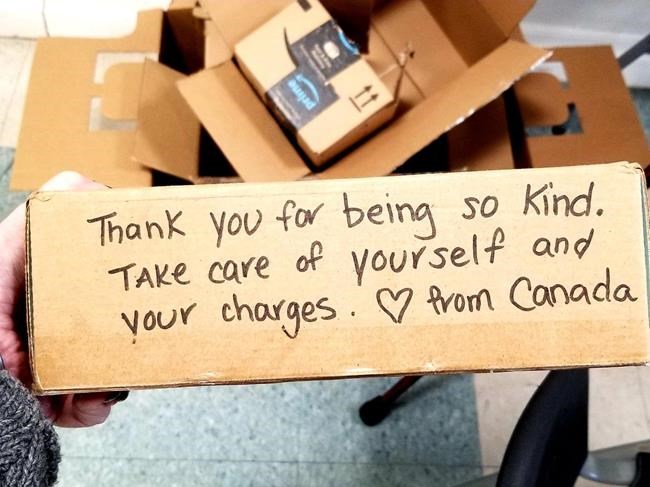 prime
Thank you for being so kind.
TAKe care of yourself and
your charges. ♡ from Canada